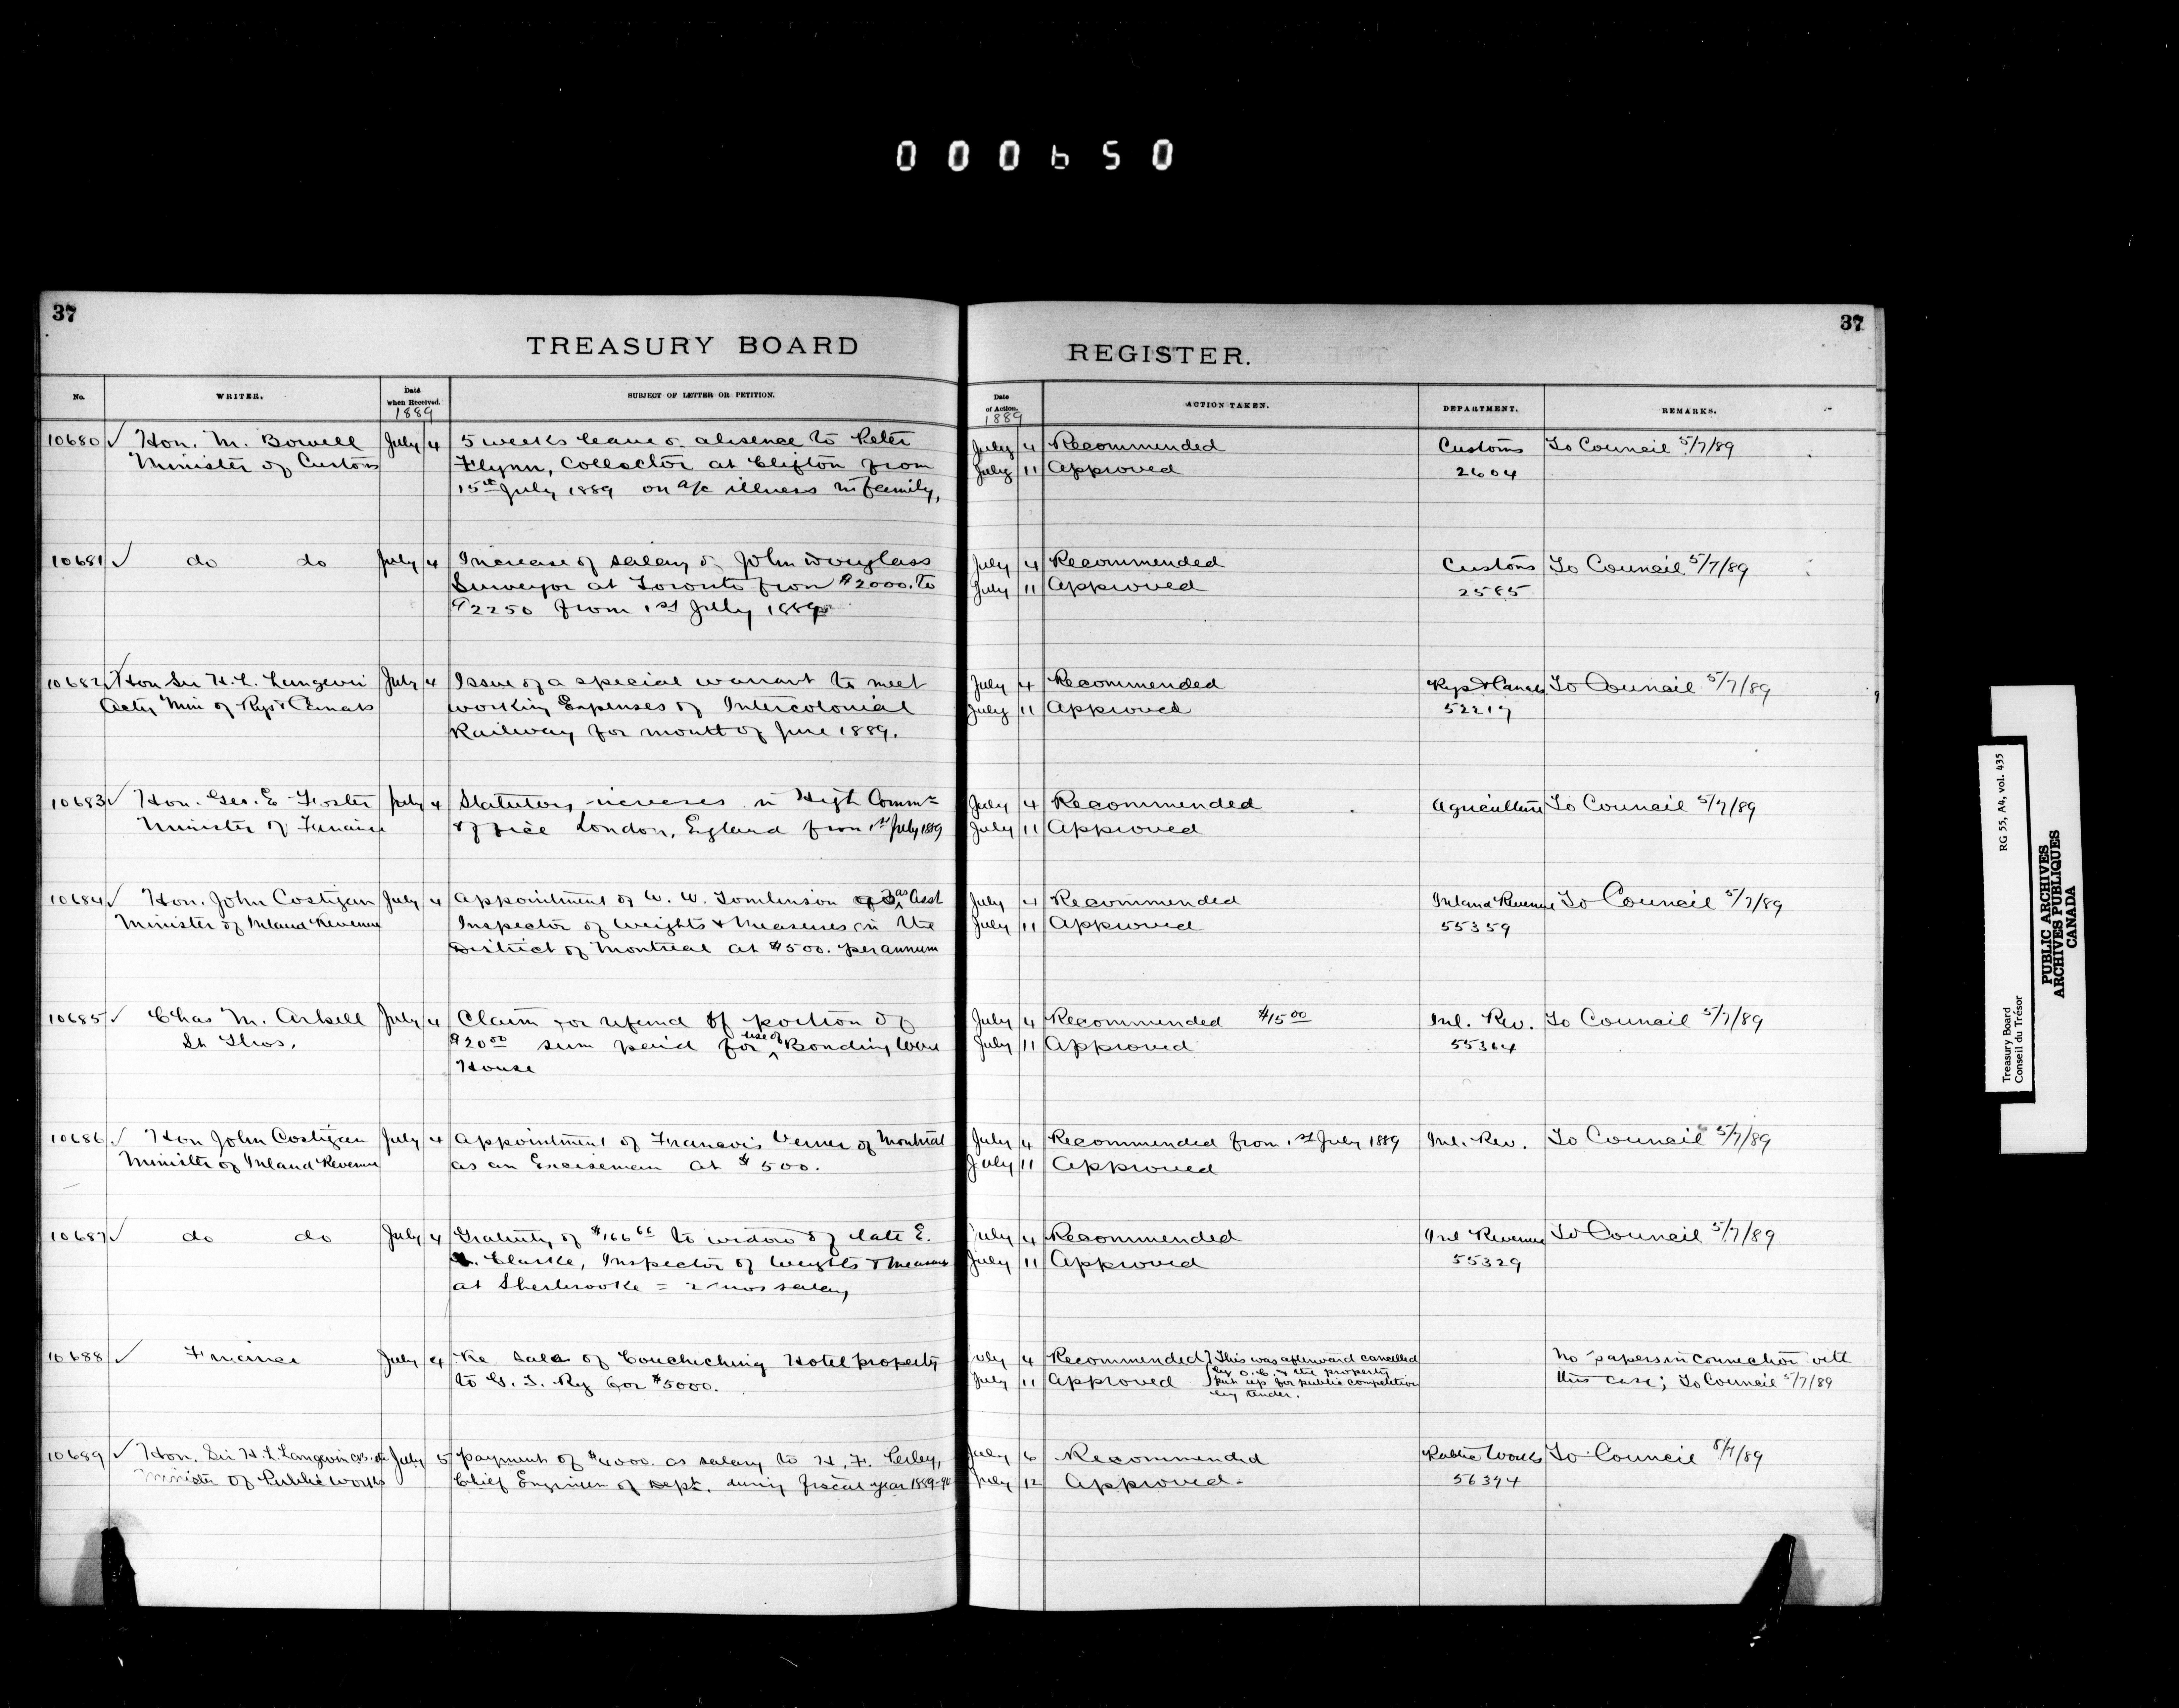 000650
37
TREASURY BOARD
No. WRITER. Date when Received. SUBJECT OF LETTER OR PETITION.
1889
10680 ✓ Hon. M. Bowell July 4 5 weeks leave of absence to Peter
Minister of Customs Flynn, Collector at Clifton from
15th July 1889 on a/c illness in family,
10681 ✓ do do July 4 Increase of salary of John Douglass
Surveyor at Toronto from $2000. to
$2250 from 1st July 1889
10682 ✓ Hon Sir H. L. Langevin July 4 Issue of a special warrant to meet
Actg Min of Rys & Canals working Expenses of Intercolonial
Railway for month of June 1889.
10683 ✓ Hon. Geo. E Foster July 4 Statutory increases in High Commrs
Minister of Finance Office London, England from 1st July 1889
10684 ✓ Hon. John Costigan July 4 Appointment of W. W. Tomlinson as Asst
Minister of Inland Revenue Inspector of Weights & Measures in the
District of Montreal at $500. per annum
10685 ✓ Chas M. Arkell July 4 Claim for refund of portion of
St Thos, $20 00 sum paid for use of Bonding Ware
House
10686 ✓ Hon John Costigan July 4 Appointment of Francois Verner of Montreal
Minister of Inland Revenue as an Exciseman at $500.
10687 ✓ do do July 4 Gratuity of $166 66 to widow of late E.
Clarke, Inspector of Weights & Measures
at Sherbrooke = 2 mos salary
10688 ✓ Finance July 4 Re Sale of Couchiching Hotel property
to G. T. Ry for $5000.
10689 ✓ Hon. Sir H. L. Langevin July 5 Payment of $4000. as salary to H. F. Perley,
Minister of Public Works Chief Engineer of Dept. during fiscal year 1889-90
37
REGISTER.
Date of Action. ACTION TAKEN. DEPARTMENT. REMARKS.
1889
July 4 Recommended Customs To Council 5/7/89
July 11 Approved 2604
July 4 Recommended Customs To Council 5/7/89
July 11 Approved 2585
July 4 Recommended Rys & Canals To Council 5/7/89
July 11 Approved 52217
July 4 Recommended Agriculture To Council 5/7/89
July 11 Approved
July 4 Recommended Inland Revenue To Council 5/7/89
July 11 Approved 55359
July 4 Recommended $15 00 Inl. Rev. To Council 5/7/89
July 11 Approved 55364
July 4 Recommended from 1st July 1889 Inl. Rev. To Council 5/7/89
July 11 Approved
July 4 Recommended Inl Revenue To Council 5/7/89
July 11 Approved 55329
July 4 Recommended This was afterward cancelled No papers in connection with
by O.C. & the property
July 11 Approved put up for public competition this case; To Council 5/7/89
by tender.
July 6 Recommended Public Works To Council 8/7/89
July 12 Approved 56394
Treasury Board RG 55, A4, vol. 435
Conseil du Trésor
PUBLIC ARCHIVES
ARCHIVES PUBLIQUES
CANADA